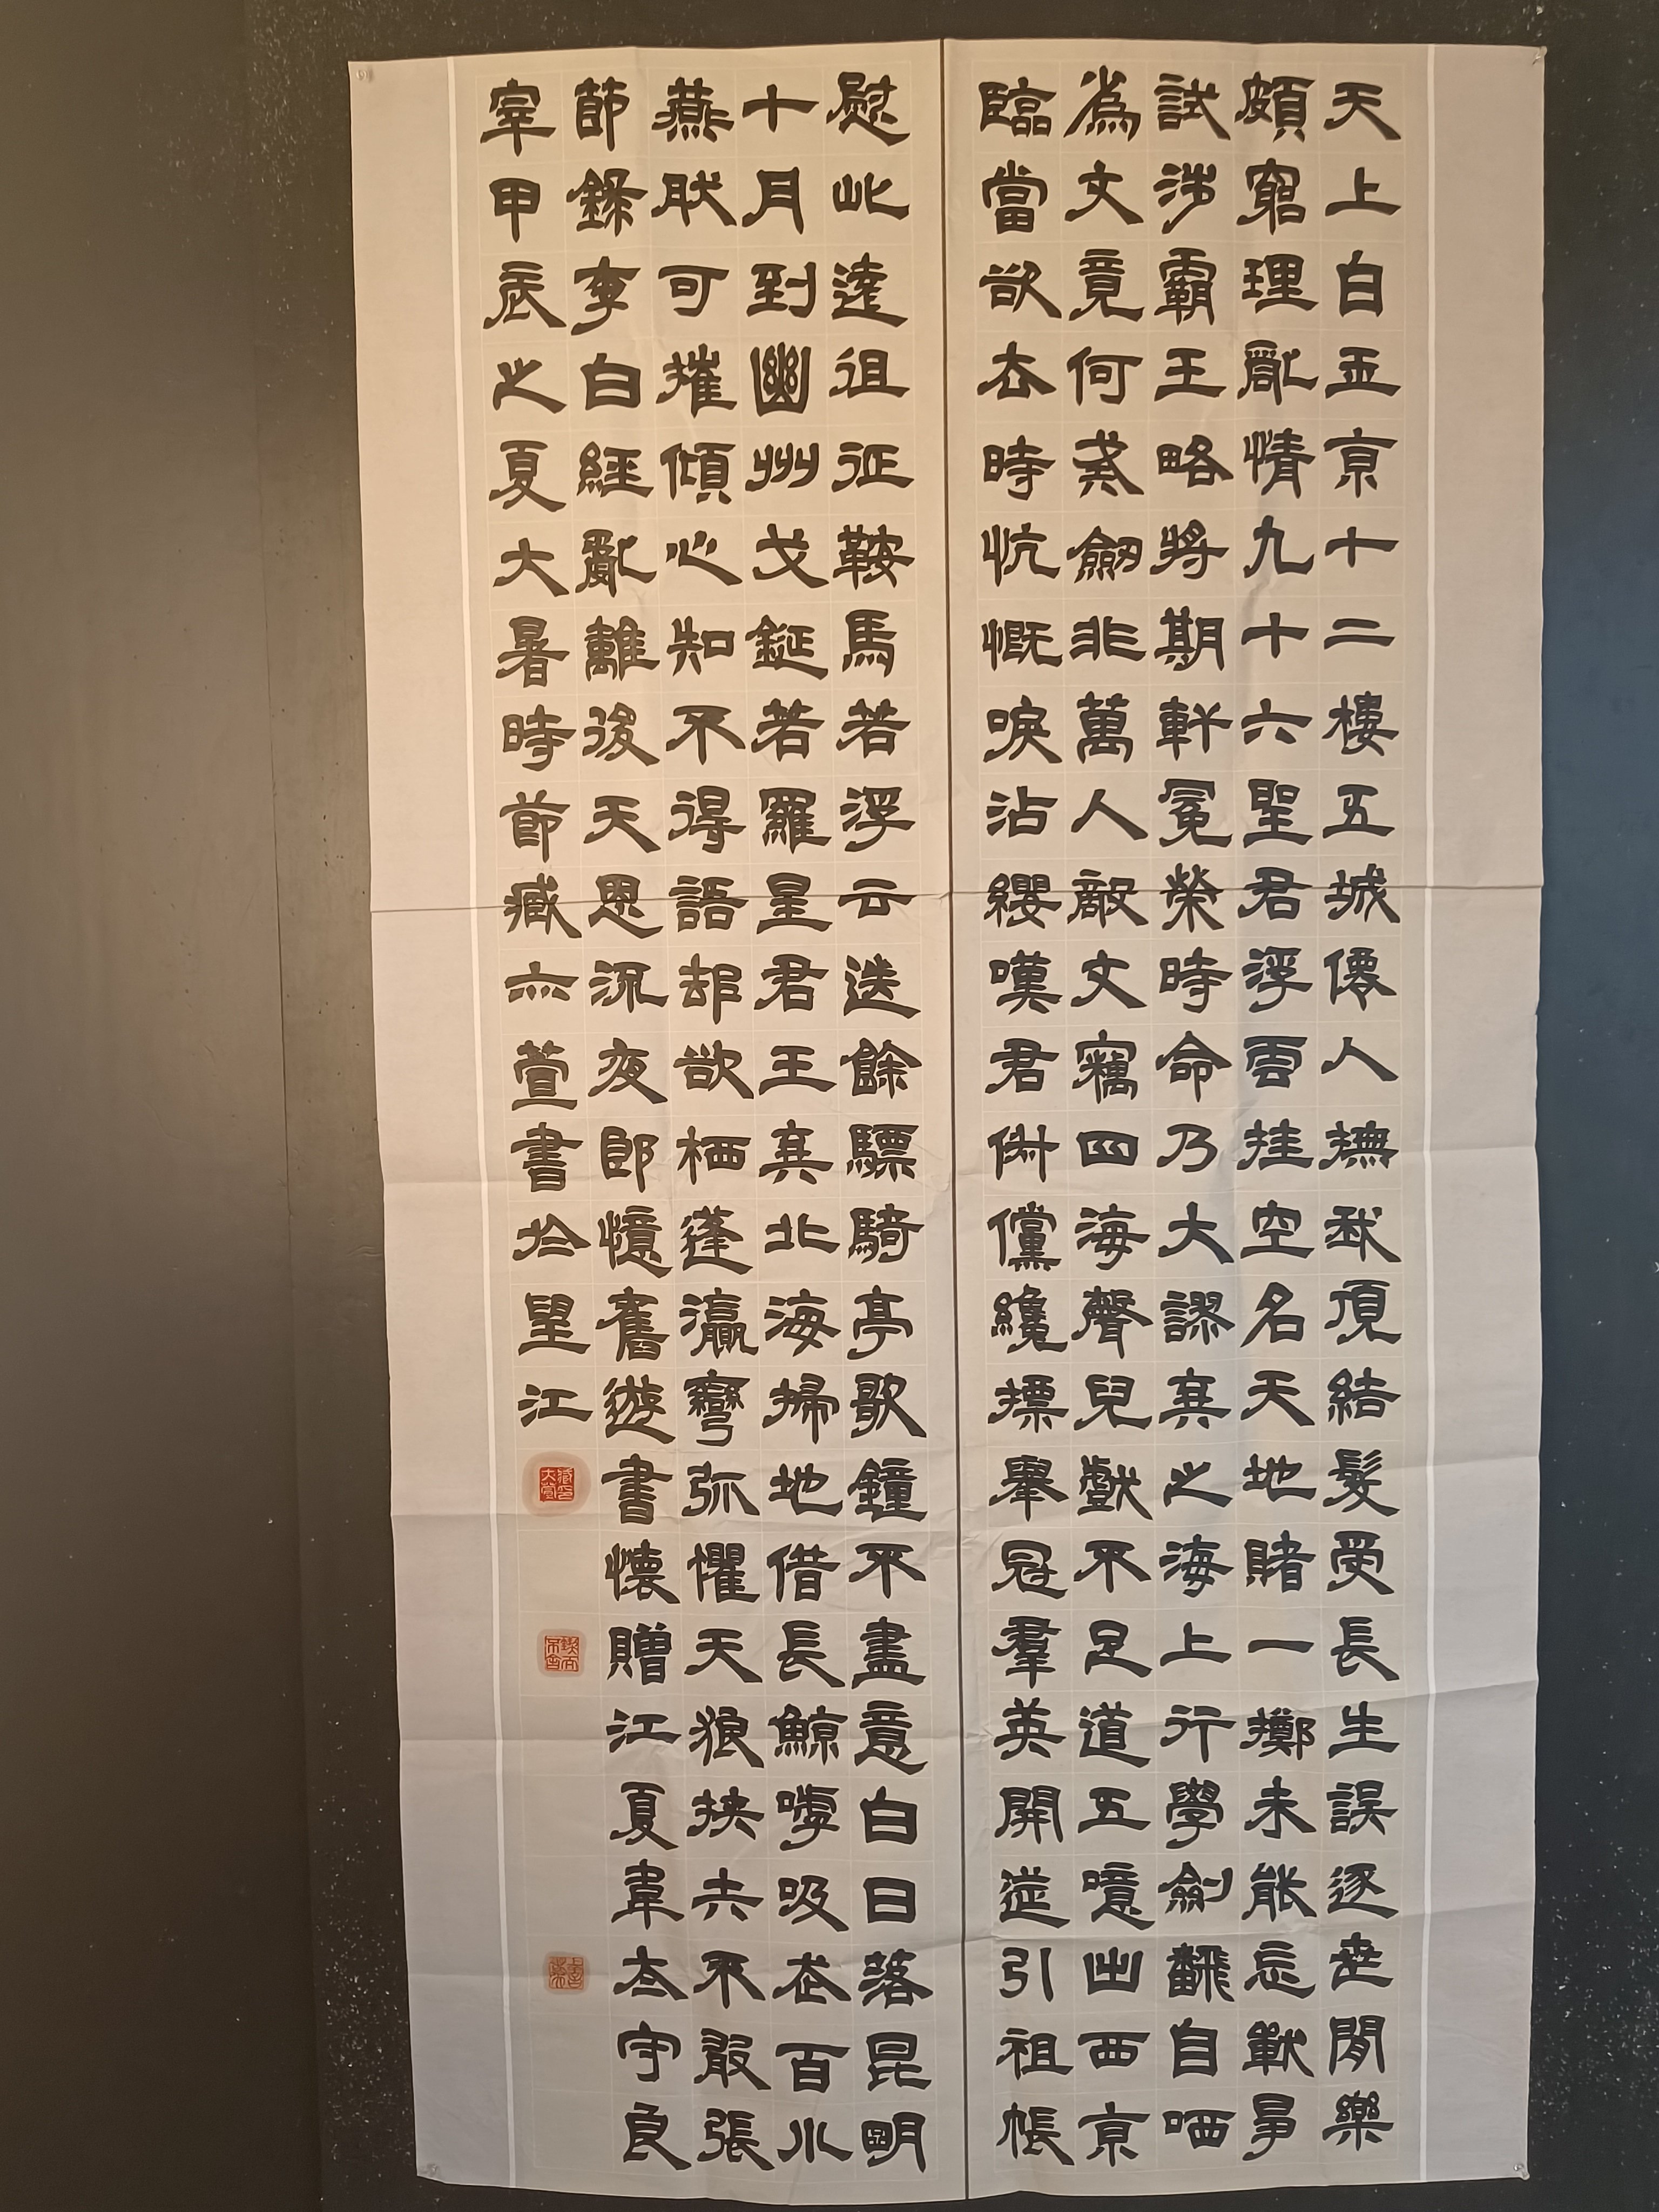 天上白玉京十二樓五城僊人撫我頂結髮受長生誤逐世閒樂
頗窮理亂情九十六聖君浮雲挂空名天地賭一擲未能忘戰爭
試涉霸王略將期軒冕榮時命乃大謬棄之海上行學劍翻自哂
為文竟何成劒非萬人敵文竊四海聲兒戲不足道五噫出西京
臨當欲去時忼慨唳沾纓嘆君倜儻纔摽舉冠羣英開筵引祖帳
慰此遠徂征鞍馬若浮云送餘驃騎亭歌鐘不盡意白日落昆明
十月到幽州戈鋋若羅星君王棄北海掃地借長鯨嘑吸走百川
燕肰可摧傾心知不得語却欲栖蓬瀛彎弧懼天狼挾矢不敢張
節錄李白經亂離後天恩流夜郎憶舊遊書懷贈江夏韋太守良
宰甲辰之夏大暑時節臧亦萱書於望江
鍥而不舍